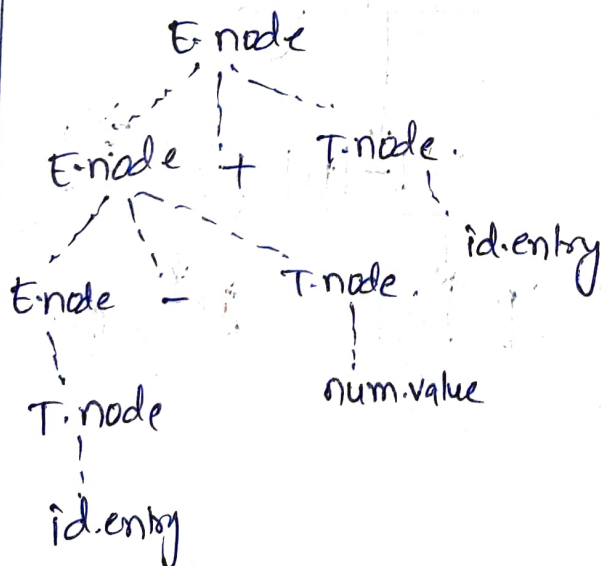 E.node
E.node + T.node.
id.entry
E.node - T.node.
num.value
T.node
id.entry